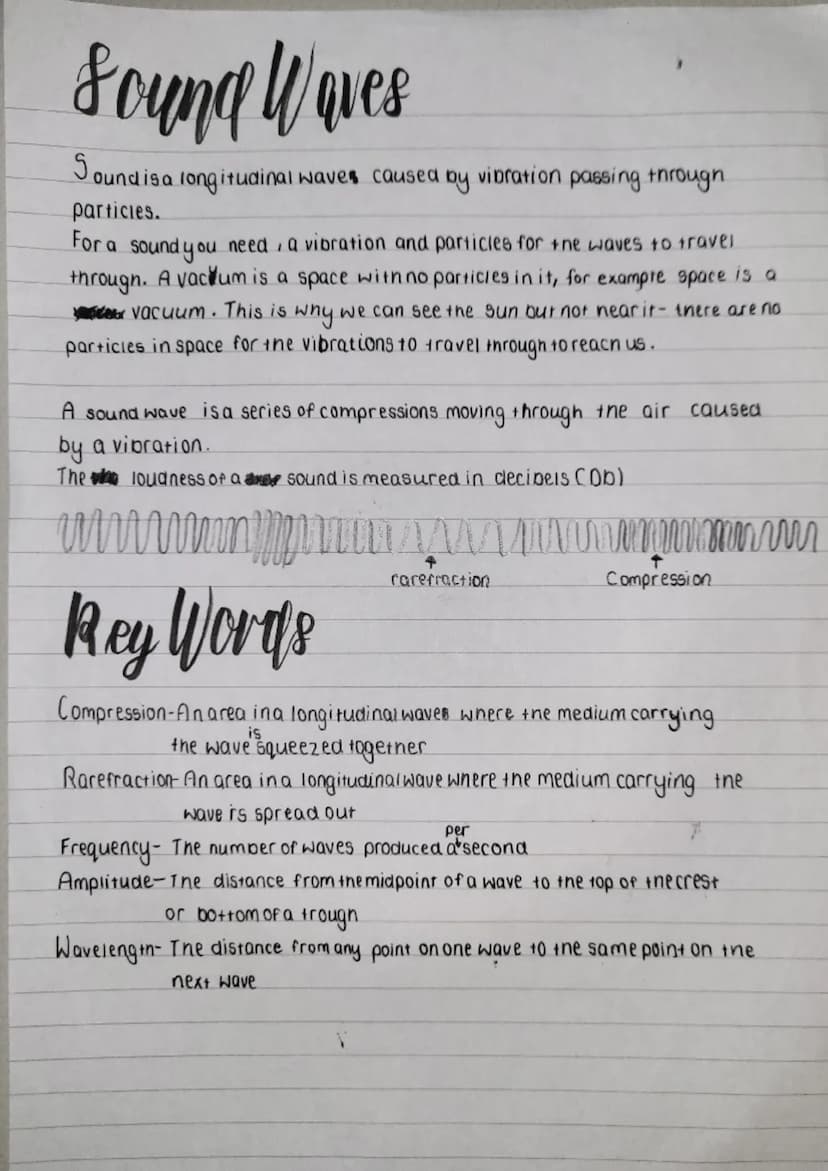 Sound Waves
Sound is a longitudinal waves caused by vibration passing through
particles.
For a sound you need , a vibration and particles for the waves to travel
through. A vacuum is a space with no particles in it, for example space is a
vacuum. This is why we can see the sun but not near it - there are no
particles in space for the vibrations to travel through to reach us.
A sound wave is a series of compressions moving through the air caused
by a vibration.
The loudness of a sound is measured in decibels (Db)
rarefraction
Compression
Key Words
Compression - An area in a longitudinal waves where the medium carrying
the wave is squeezed together
Rarefraction - An area in a longitudinal wave where the medium carrying the
wave is spread out
Frequency - The number of waves produced a per second
Amplitude - The distance from the midpoint of a wave to the top of the crest
or bottom of a trough
Wavelength - The distance from any point on one wave to the same point on the
next wave